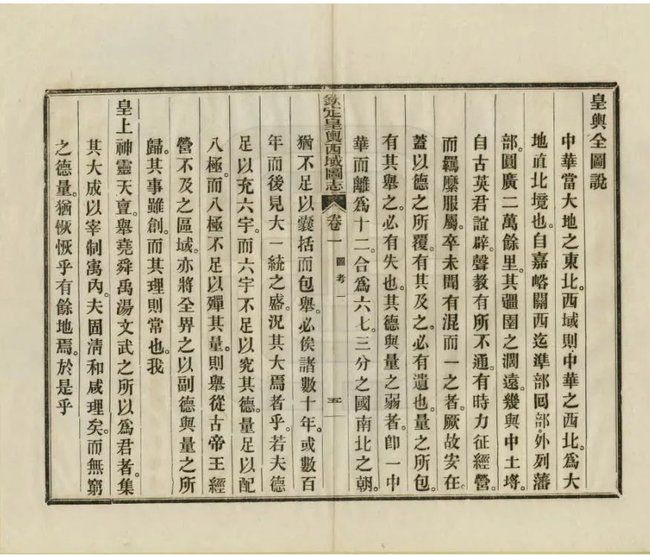 皇輿全圖說
中華當大地之東北。西域則中華之西北。為大
地直北境也。自嘉峪關西迄準部回部。外列藩
部。圓廣二萬餘里。其疆圉之濶遠。幾與中土埒。
自古英君誼辟。聲教有所不通。有時力征經營。
而羈縻服屬。卒未聞有混而一之者。厥故安在。
蓋以德之所覆。有其及之。必有遺也。量之所包。
有其舉之。必有失也。其德與量之弱者。卽一中
華而離爲十二。合爲六七。三分之國。南北之朝。
欽定皇輿西域圖志 卷一 圖考一 五
猶不足以囊括而包舉。必俟諸數十年。或數百
年而後見大一統之盛。況其大焉者乎。若夫德
足以充六宇。而六宇不足以究其德。量足以配
八極。而八極不足以殫其量。則舉從古帝王經
營不及之區域。亦將全畀之以副德與量之所
歸。其事雖創。而其理則常也。我
皇上神靈天亶。舉堯舜禹湯文武之所以爲君者。集
其大成以宰制寓內。夫固淸和咸理矣。而無窮
之德量。猶恢恢乎有餘地焉。於是乎